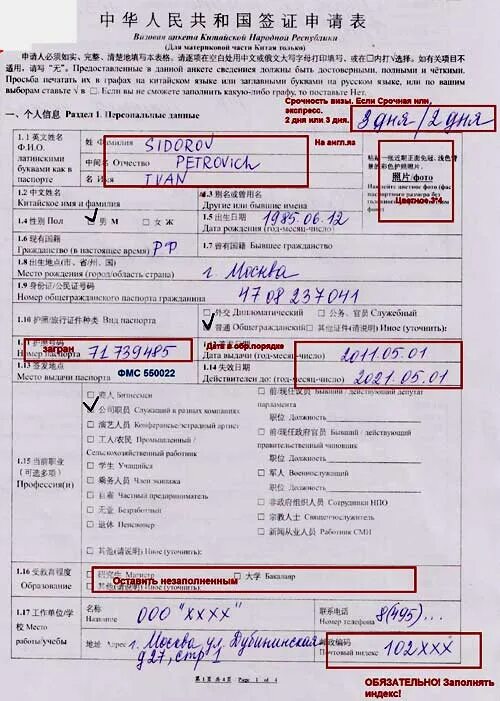 中华人民共和国签证申请表
Визовая анкета Китайской Народной Республики
(Для материковой части Китая только)
申请人必须如实、完整、清楚地填写本表格。请逐项在空白处用中文或俄文大写字母打印填写，或在□内打√选择。如有关项目不
适用，请写“无”。Предоставленные в данной анкете сведения должны быть достоверными, полными и чёткими.
Просьба печатать их в графах на китайском языке или заглавными буквами на русском языке, или по вашим
выборам ставить √ в □. Если вы не сможете заполнить какую-либо графу, то поставьте Нет.
Срочность визы. Если Срочная или, экспресс.
2 дня или 3 дня.
3 дня / 2 дня
一、个人信息 Раздел 1. Персональные данные
На англ.яз
1.1 英文姓名
Ф.И.О.
латинскими
буквами как в
паспорте
姓 Фамилия SIDOROV
中间名 Отчество PETROVICH
名 Имя IVAN
粘贴一张近期正面免冠、浅色背
景的彩色护照照片。
照片/фото
Цветное 3*4
1.2 中文姓名
Китайское имя и фамилия
1.3 别名或曾用名
Другие или бывшие имена
1.4 性别 Пол √ □ 男 М □ 女 Ж
1.5 出生日期
Дата рождения (год-месяц-число)
1985.06.12
1.6 现有国籍
Гражданство (в настоящее время) РФ
1.7 曾有国籍 Бывшее гражданство
1.8 出生地点(市、省/州、国)
Место рождения (город/область страна) г. Москва
1.9 身份证/公民证号码
Номер общегражданского паспорта гражданина 47 08 237041
1.10 护照/旅行证件种类 Вид паспорта
□ 外交 Дипломатический □ 公务、官员 Служебный
√ 普通 Общегражданский □ 其他证件(请说明) Иное (уточнить):
загран
1.11 护照号码
Номер паспорта 71 739485
Дата в обр.порядке
Дата выдачи (год-месяц-число) 2011.05.01
1.13 签发地点
Место выдачи паспорта ФМС 550022
1.14 失效日期
Действителен до: (год-месяц-число) 2021.05.01
1.15 当前职业
(可选多项)
Профессия(и)
□ 商人 Бизнесмен
√ 公司职员 Служащий в разных компаниях
□ 演艺人员 Конферансье/эстрадный артист
□ 工人/农民 Промышленный /
Сельскохозяйственный работник
□ 学生 Учащийся
□ 乘务人员 Член экипажа
□ 自雇 Частный предприниматель
□ 无业 Безработный
□ 退休 Пенсионер
□ 其他(请说明) Иное (уточнить):
□ 前/现任议员 Бывший / действующий депутат
парламента
职位 Должность
□ 前/现任政府官员 Бывший / действующий
правительственный чиновник
职位 Должность
□ 军人 Военнослужащий
职位 Должность
□ 非政府组织人员 Сотрудники НПО
□ 宗教人士 Священнослужитель
□ 新闻从业人员 Работник СМИ
1.16 受教育程度
Образование
□ 研究生 Магистр □ 大学 Бакалавр
□ 其他(请说明) Иное (уточнить):
Оставить незаполненным
1.17 工作单位/学
校 Место
работы/учебы
名称
Название ООО "ХХХХ"
联系电话
Номер телефона 8(495)...
地址 Адрес г. Москва, ул. Дубининская
д 27, стр 1
邮政编码
Почтовый индекс 102ХХХ
第1页 共4页 Page 1 of 4
ОБЯЗАТЕЛЬНО! Заполнять
индекс!